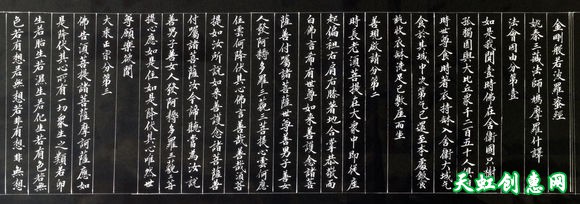 金剛般若波羅蜜經
姚秦三藏法師鳩摩羅什譯
法會因由分第壹
如是我聞壹時佛在舍衛國祇樹給
孤獨園與大比丘眾千二百五十人俱爾
時世尊食時著衣持缽入舍衛大城乞
食於其城中次第乞已還至本處飯食
訖收衣缽洗足已敷座而坐
善現啟請分第二
時長老須菩提在大眾中即從座
起偏袒右肩右膝著地合掌恭敬而
白佛言希有世尊如來善護念諸菩
薩善付囑諸菩薩世尊善男子善女
人發阿耨多羅三藐三菩提心云何應
住云何降伏其心佛言善哉善哉須菩
提如汝所說如來善護念諸菩薩善
付囑諸菩薩汝今諦聽當為汝說
善男子善女人發阿耨多羅三藐三菩
提心應如是住如是降伏其心唯然世
尊願樂欲聞
大乘正宗分第三
佛告須菩提諸菩薩摩訶薩應如
是降伏其心所有一切眾生之類若卵
生若胎生若濕生若化生若有色若無
色若有想若無想若非有想非無想
天虹创惠网